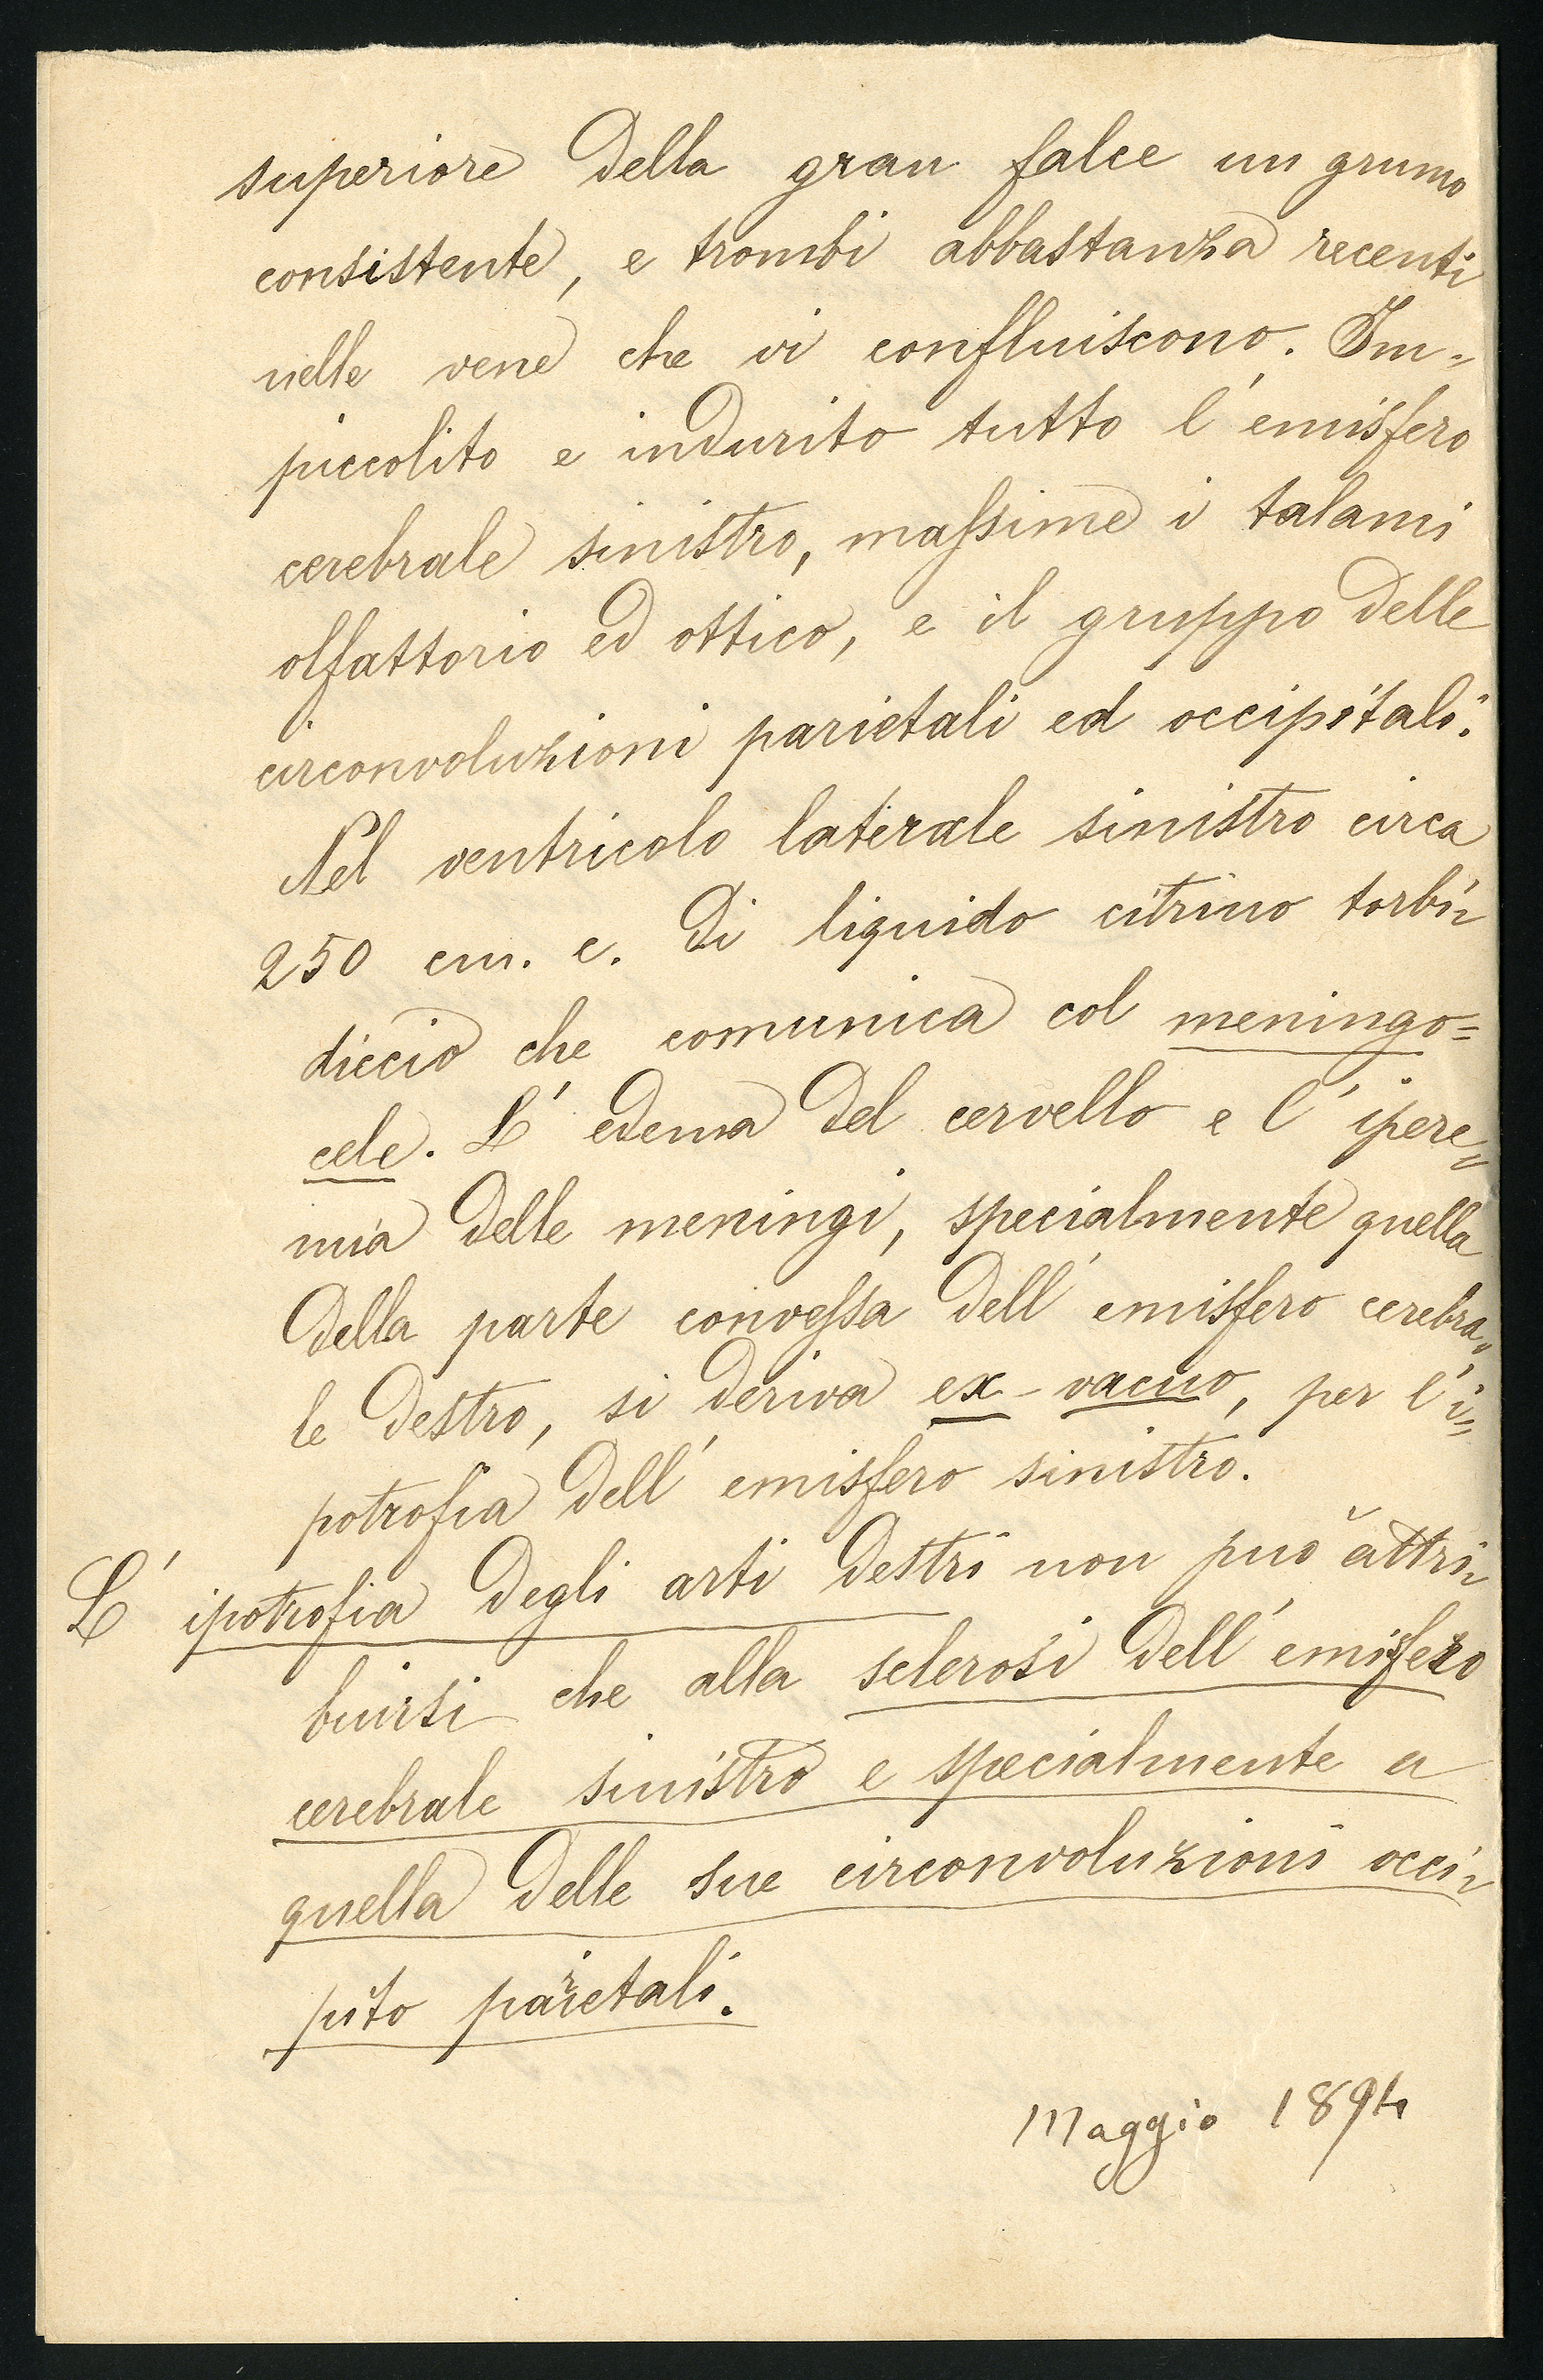 superiore della gran falce un grumo
consistente, e trombi abbastanza recenti
nelle vene che vi confluiscono. Im-
piccolito e indurito tutto l'emisfero
cerebrale sinistro, massime i talami
olfattorio ed ottico, e il gruppo delle
circonvoluzioni parietali ed occipitali.
Nel ventricolo laterale sinistro circa
250 cm. c. di liquido citrino torbi-
diccio che comunica col meningo=
cele. L'edema del cervello e l'ipere=
mia delle meningi, specialmente quella
della parte convessa dell'emisfero cerebra=
le destro, si deriva ex-vacuo, per l'i=
potrofia dell'emisfero sinistro.
L'ipotrofia degli arti destri non può attri-
buirsi che alla sclerosi dell'emisfero
cerebrale sinistro e specialmente a
quella delle sue circonvoluzioni occi-
pito parietali.
Maggio 1894